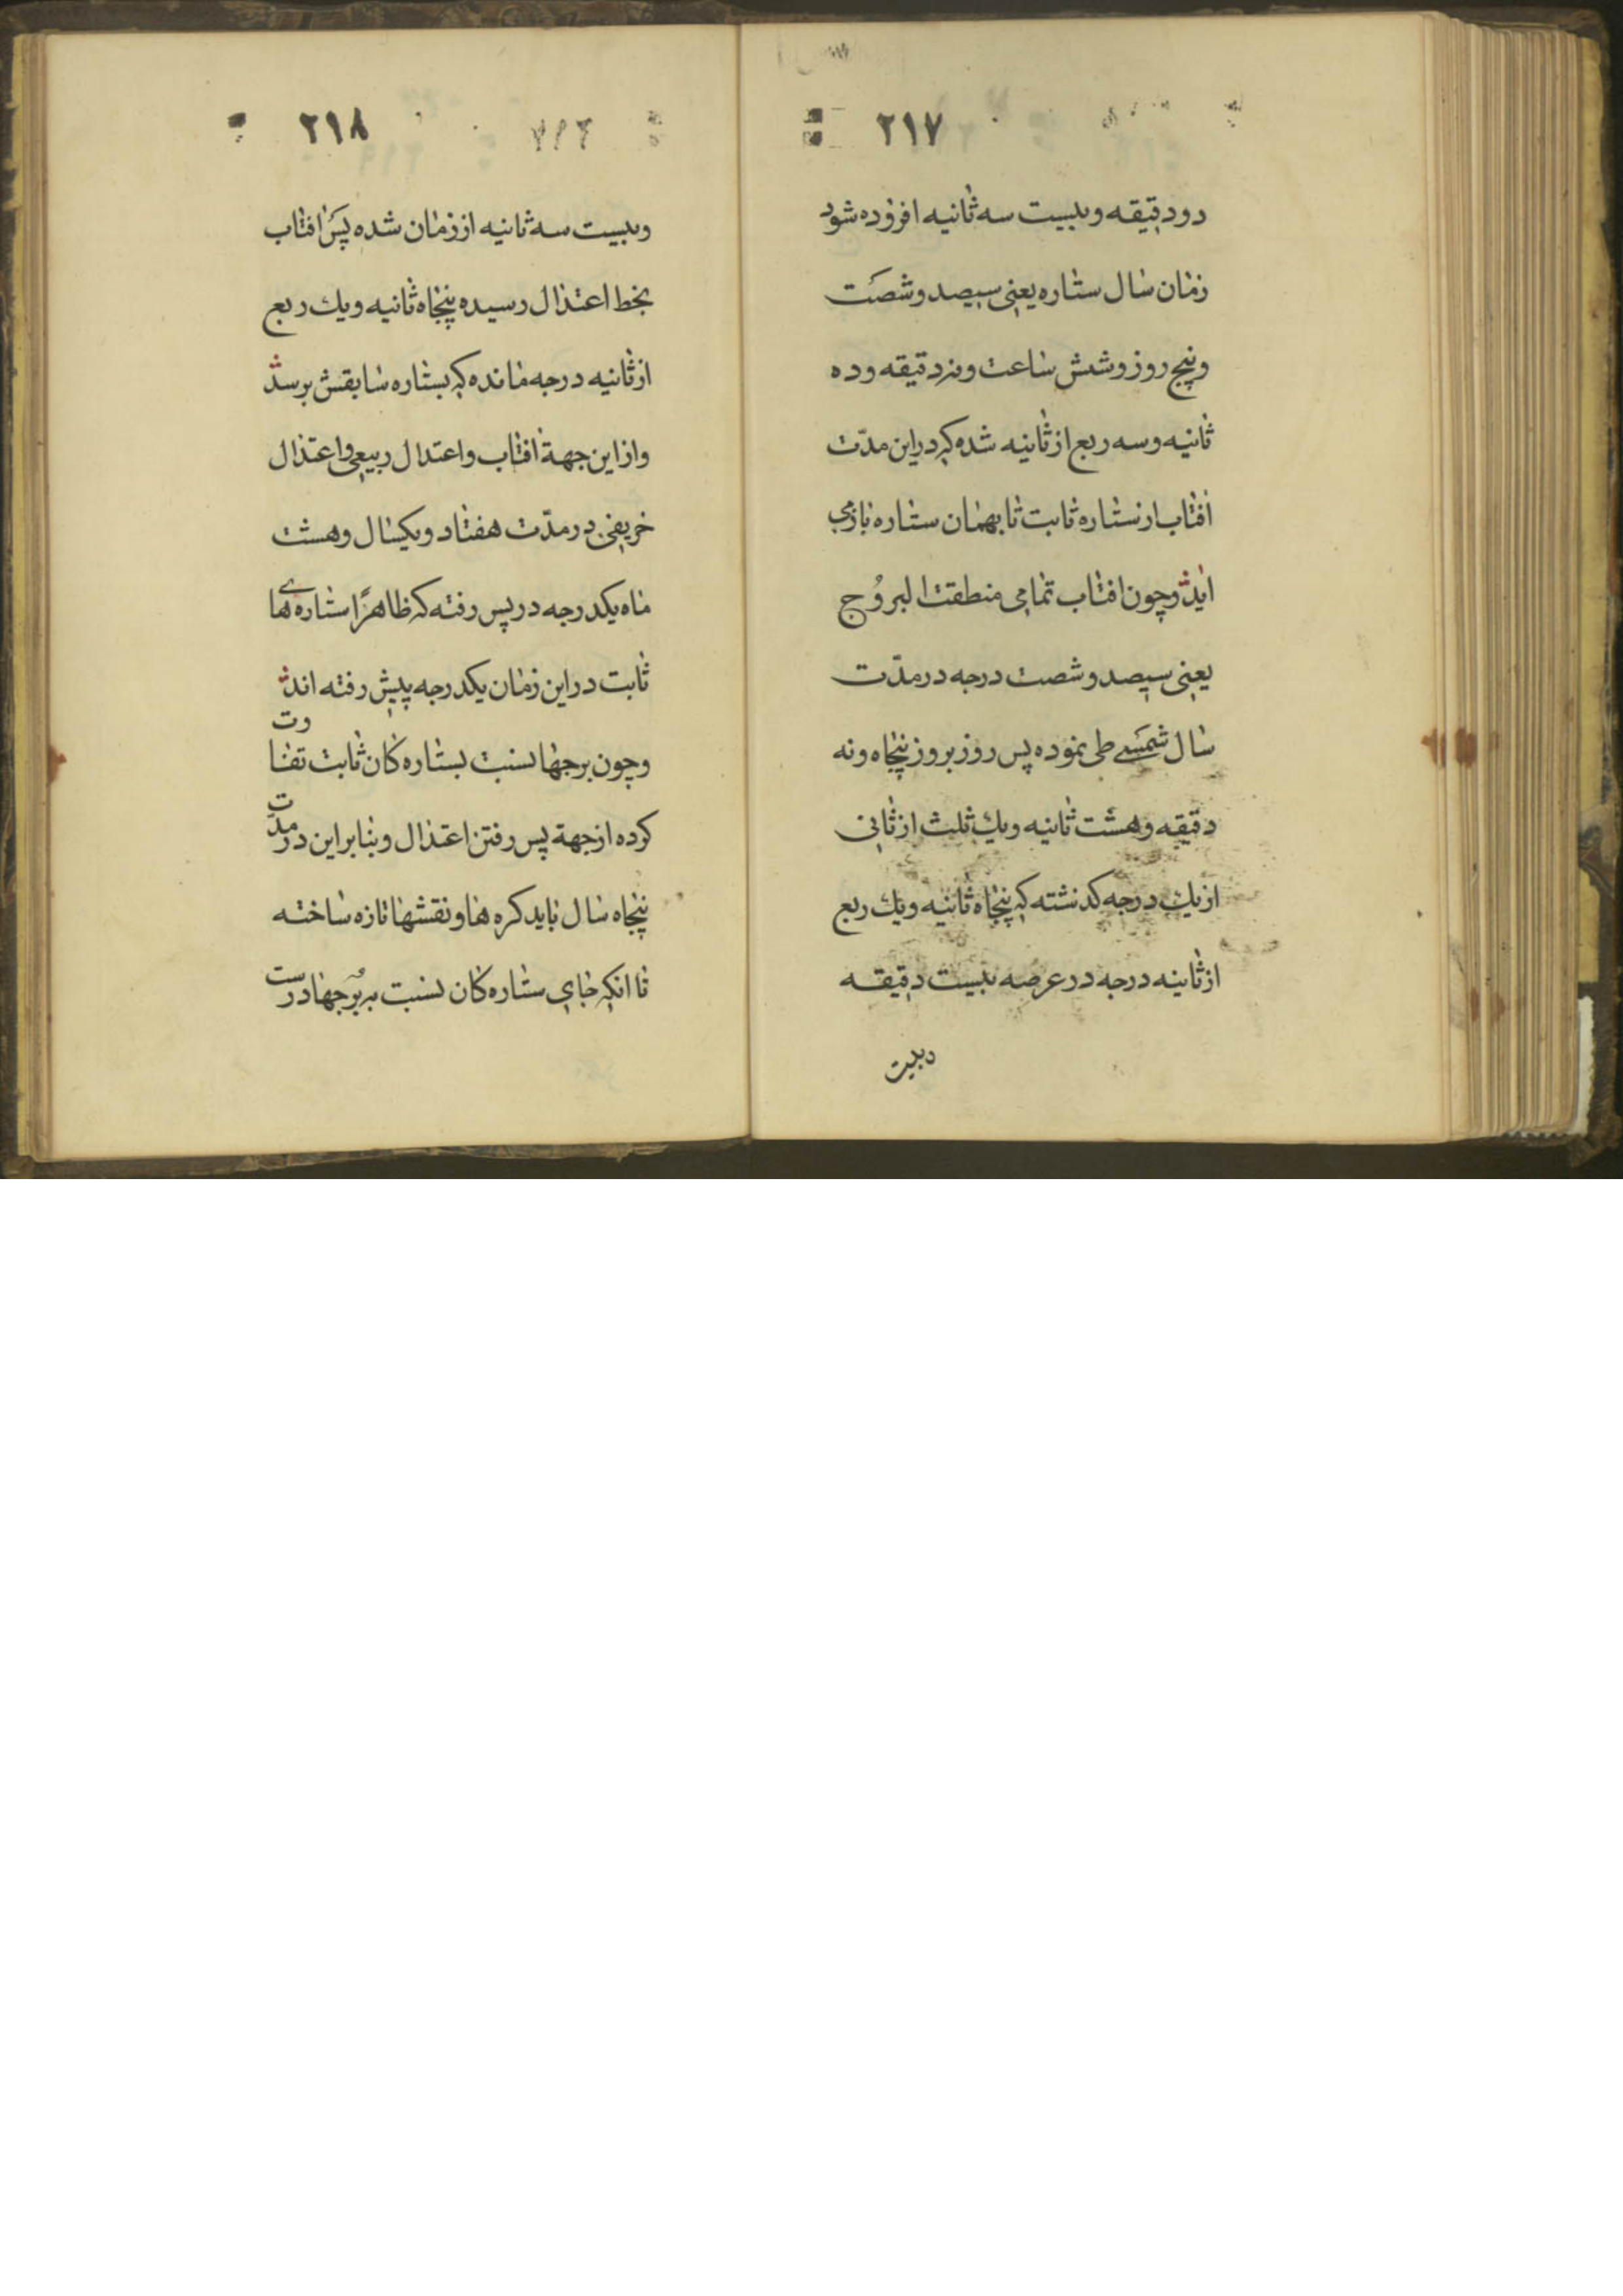 ۲۱۷
دو دقیقه و بیست سه ثانیه افزوده شود
زمان سال ستاره یعنی سیصد و شصت
و پنج روز و شش ساعت و نه دقیقه و ده
ثانیه و سه ربع از ثانیه شده که در این مدّت
افتاب از ستاره ثابت تا بهمان ستاره باز می
اید و چون افتاب تمامی منطقت البرُوج
یعنی سیصد و شصت درجه در مدّت
سال شمسے طی نموده پس روز بروز پنجاه و نه
دقیقه و هشت ثانیه و یك ثلث از ثانی
از یك درجه کذشته که پنجاه ثانیه و یك ربع
از ثانیه درجه در عرصه بیست دقیقه
و بیست
۲۱۸
و بیست سه ثانیه از زمان شده پس افتاب
بخط اعتدال رسیده پنجاه ثانیه و یك ربع
از ثانیه درجه مانده که بستاره سابقش برسد
و از این جهة افتاب و اعتدال ربیعی و اعتدال
خریفی در مدّت هفتاد و یکسال و هشت
ماه یکدرجه در پس رفته که ظاهرًا ستاره هاے
ثابت در این زمان یکدرجه پیش رفته اند
و چون برجها نسبت بستاره کان ثابت تفاوت
کرده از جهة پس رفتن اعتدال و بنا بر این در مدّت
پنجاه سال باید کره ها و نقشها تازه ساخته
تا انکه جای ستاره کان نسبت به بُرجها درست